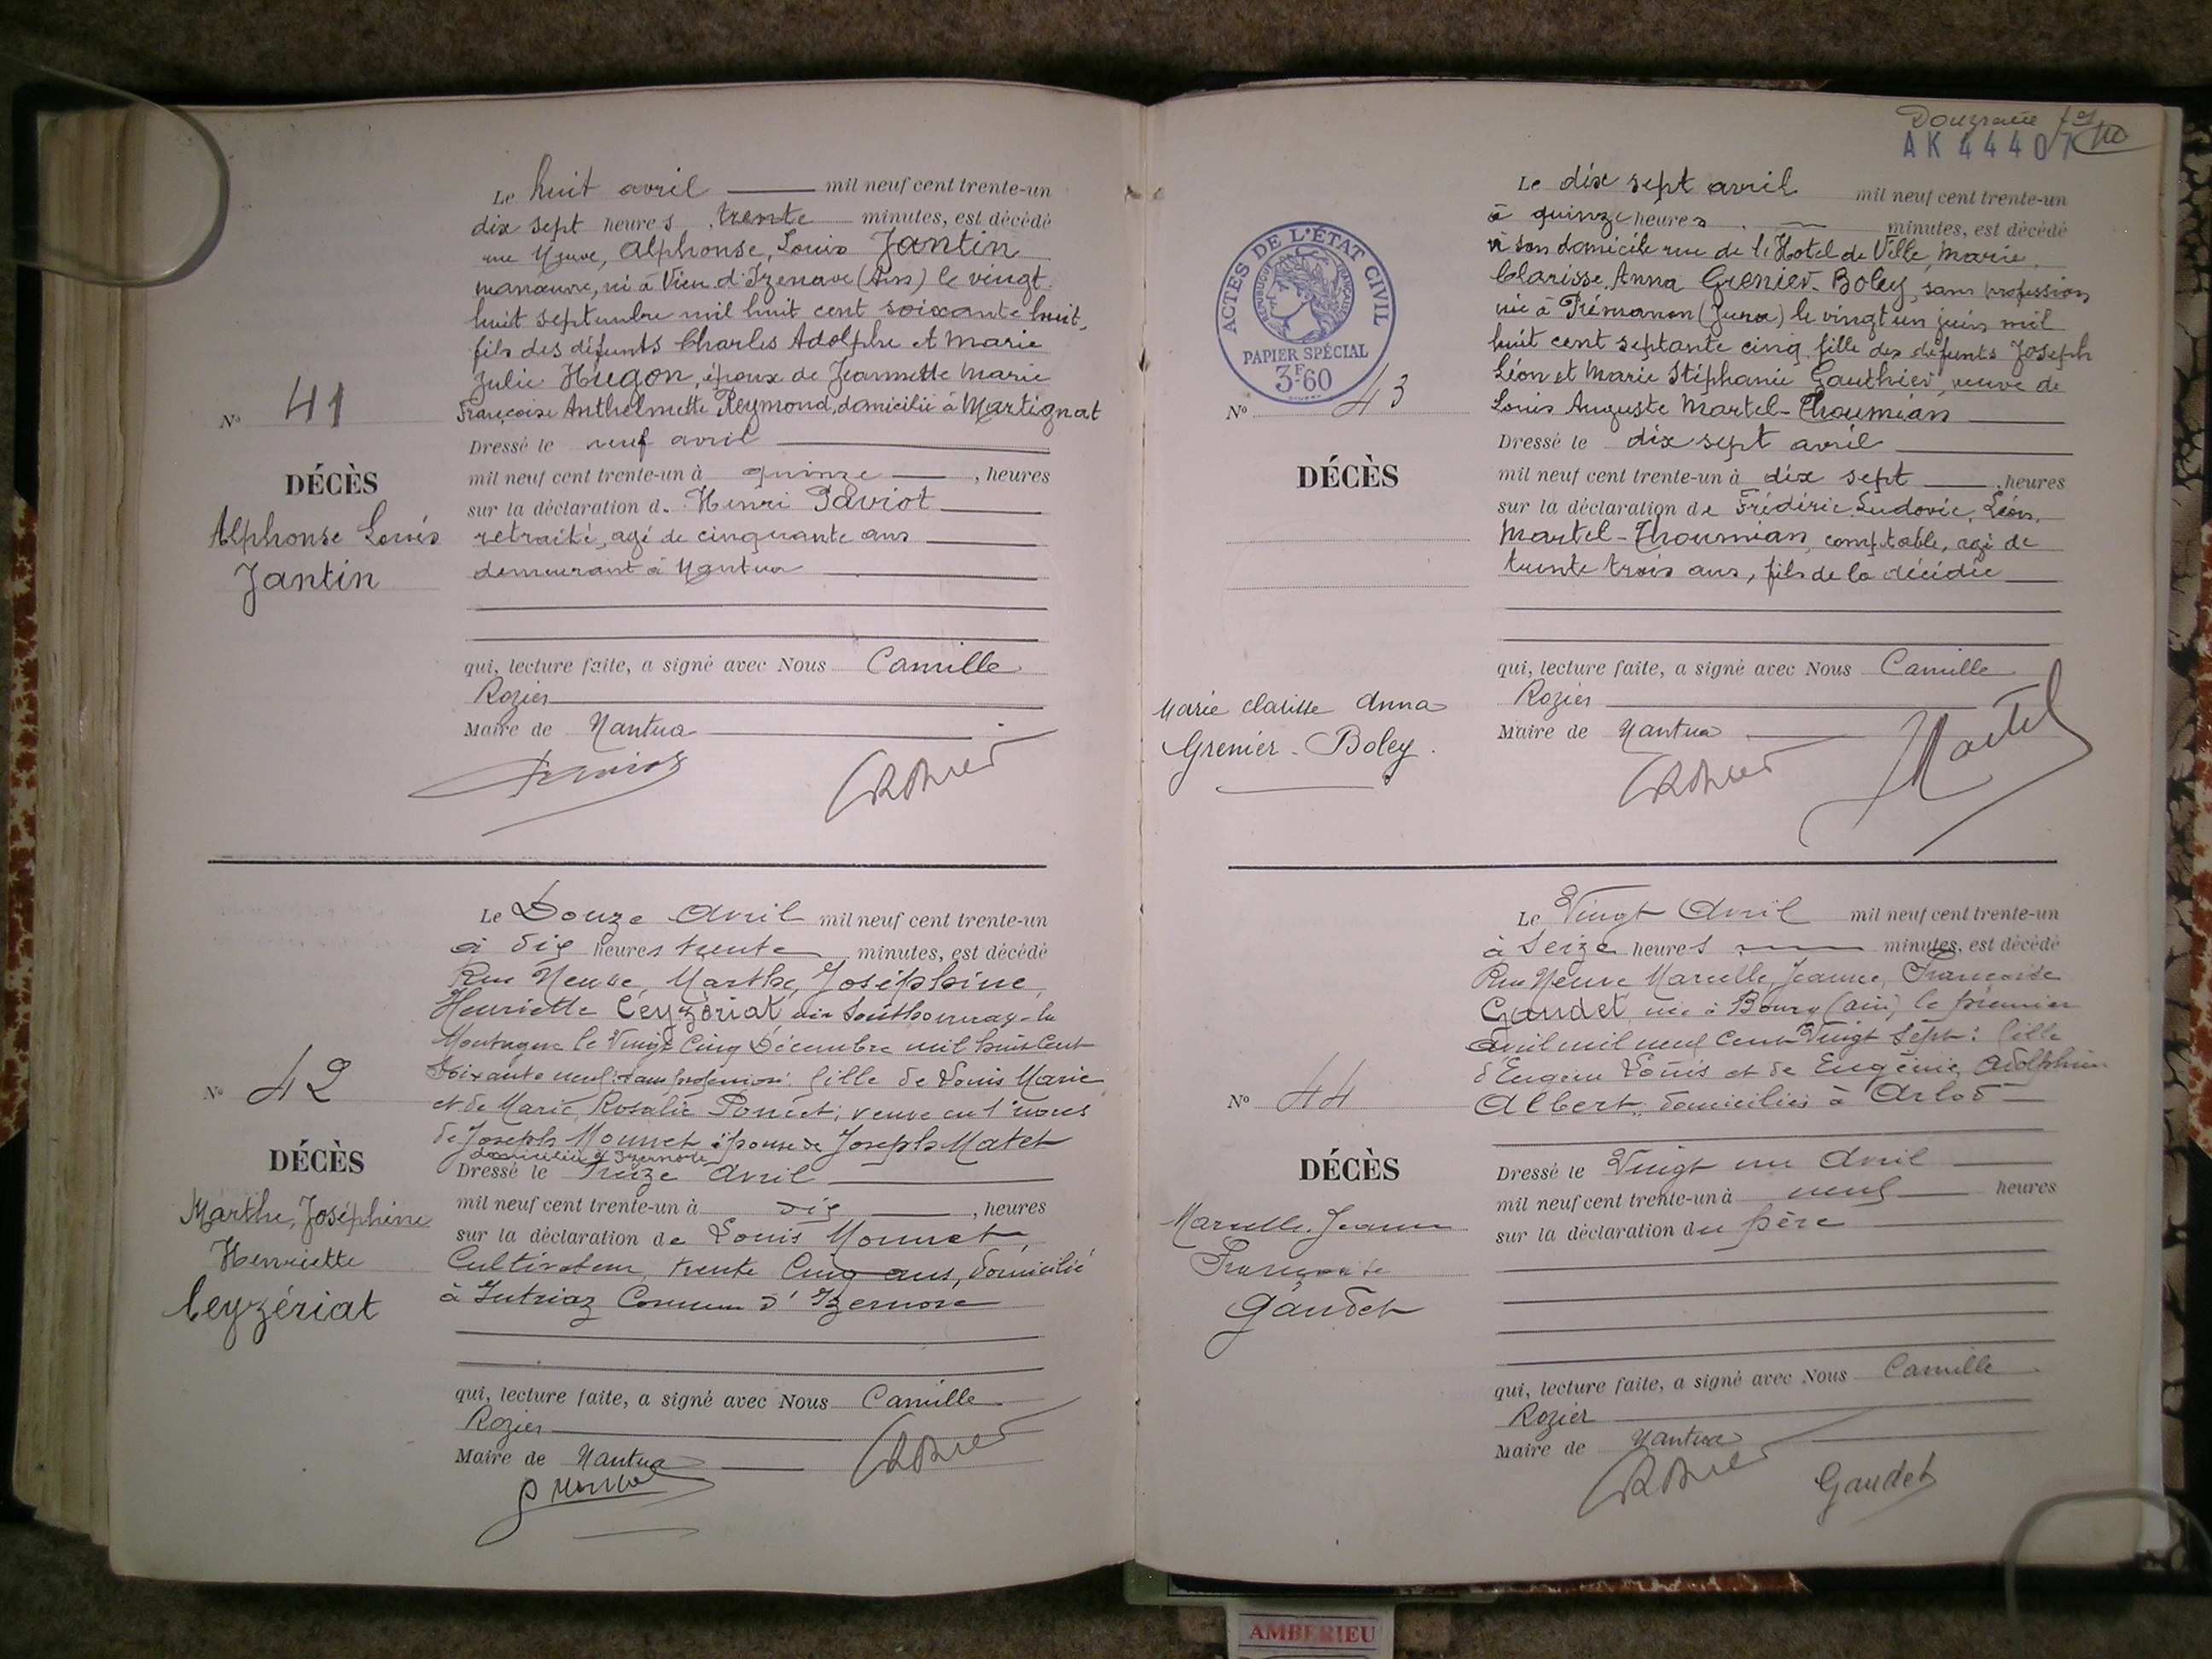 Le huit avril mil neuf cent trente-un
dix sept heures, trente minutes, est décédé
rue Neuve, Alphonse, Louis Jantin
manœuvre, né à Vieu d'Izenave (Ain) le vingt
huit septembre mil huit cent soixante huit,
fils des défunts Charles Adolphe et Marie
Julie Hugon, époux de Jeannette Marie
Françoise Anthelmette Reymond, domicilié à Martignat
N° 41
DÉCÈS
Alphonse Louis
Jantin
Dressé le neuf avril
mil neuf cent trente-un à quinze, heures
sur la déclaration d. Henri Paviot
retraité, agé de cinquante ans
demeurant à Nantua
qui, lecture faite, a signé avec Nous Camille
Rozier
Maire de Nantua
Le Douze Avril mil neuf cent trente-un
à dix heures trente minutes, est décédé
Rue Neuve, Marthe, Joséphine,
Henriette Ceyzériat née Southonnax-la
Montagne le Vingt Cinq Décembre mil huit Cent
Soixante neuf: sans profession: fille de Louis Marie
et de Marie, Rosalie Poncet; veuve en 1 noces
de Joseph Monnet épouse de Joseph Matet
domiciliée à Izernore
N° 42
DÉCÈS
Marthe, Joséphine
Henriette
Ceyzériat
Dressé le Treize Avril
mil neuf cent trente-un à dix, heures
sur la déclaration de Louis Monnet,
Cultivateur, trente Cinq ans, domicilié
à Intriaz Commune d'Izernore
qui, lecture faite, a signé avec Nous Camille
Rozier
Maire de Nantua
AK 44407
Le dix sept avril mil neuf cent trente-un
à quinze heures minutes, est décédé
à son domicile rue de l'Hotel de Ville, Marie,
Clarisse, Anna Grenier-Boley, sans profession
née à Prémanon (Jura) le vingt un juin mil
huit cent septante cinq, fille des défunts Joseph
Léon et Marie Stéphanie Gauthier, veuve de
Louis Auguste Martel-Thoumian
ACTES DE L'ÉTAT CIVIL
RÉPUBLIQUE FRANÇAISE
PAPIER SPÉCIAL
3F60
N° 43
DÉCÈS
Marie Clarisse Anna
Grenier-Boley.
Dressé le dix sept avril
mil neuf cent trente-un à dix sept, heures
sur la déclaration de Frédéric, Ludovic, Léon,
Martel-Thoumian, comptable, agé de
trente trois ans, fils de la décédée
qui, lecture faite, a signé avec Nous Camille
Rozier
Maire de Nantua
Martel
Le Vingt Avril mil neuf cent trente-un
à Seize heures minutes, est décédé
Rue Neuve Marcelle, Jeanne, Françoise
Gaudet, née à Bourg (ain) le premier
avril mil neuf Cent Vingt Sept: fille
d'Eugène Louis et de Eugénie, Adolphine
Albert, domiciliés à Arlod
N° 44
DÉCÈS
Marcelle Jeanne
Françoise
Gaudet
Dressé le Vingt un Avril
mil neuf cent trente-un à neuf heures
sur la déclaration du père
qui, lecture faite, a signé avec Nous Camille
Rozier
Maire de Nantua
Gaudet
AMBERIEU